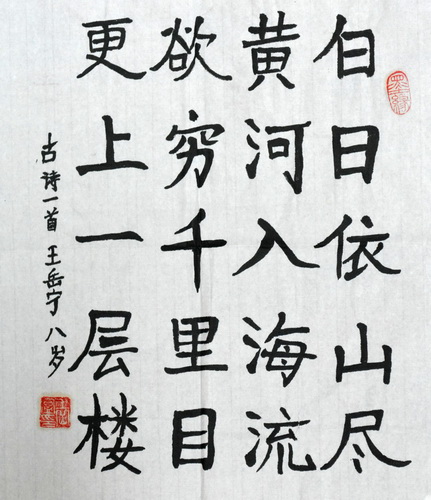 白日依山尽
黄河入海流
欲穷千里目
更上一层楼
古诗一首 王岳宁 八岁